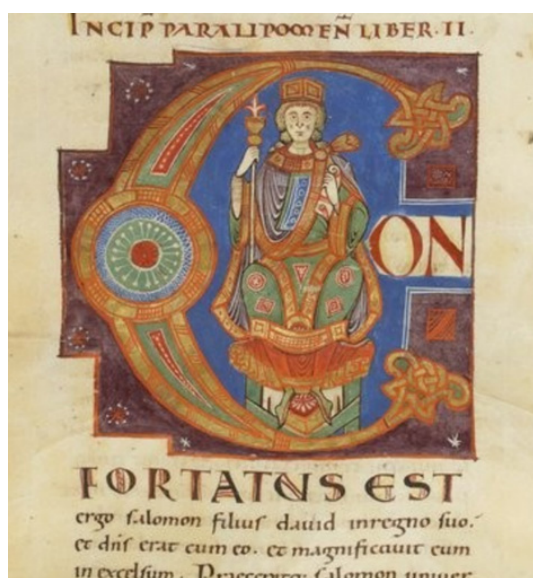 INCIP PARALIPOMEN LIBER · II ·
CON
FORTATUS EST
ergo salomon filius dauid inregno suo.
et dns erat cum eo. et magnificauit eum
in excelsum. Praecepitq; salomon uniuer